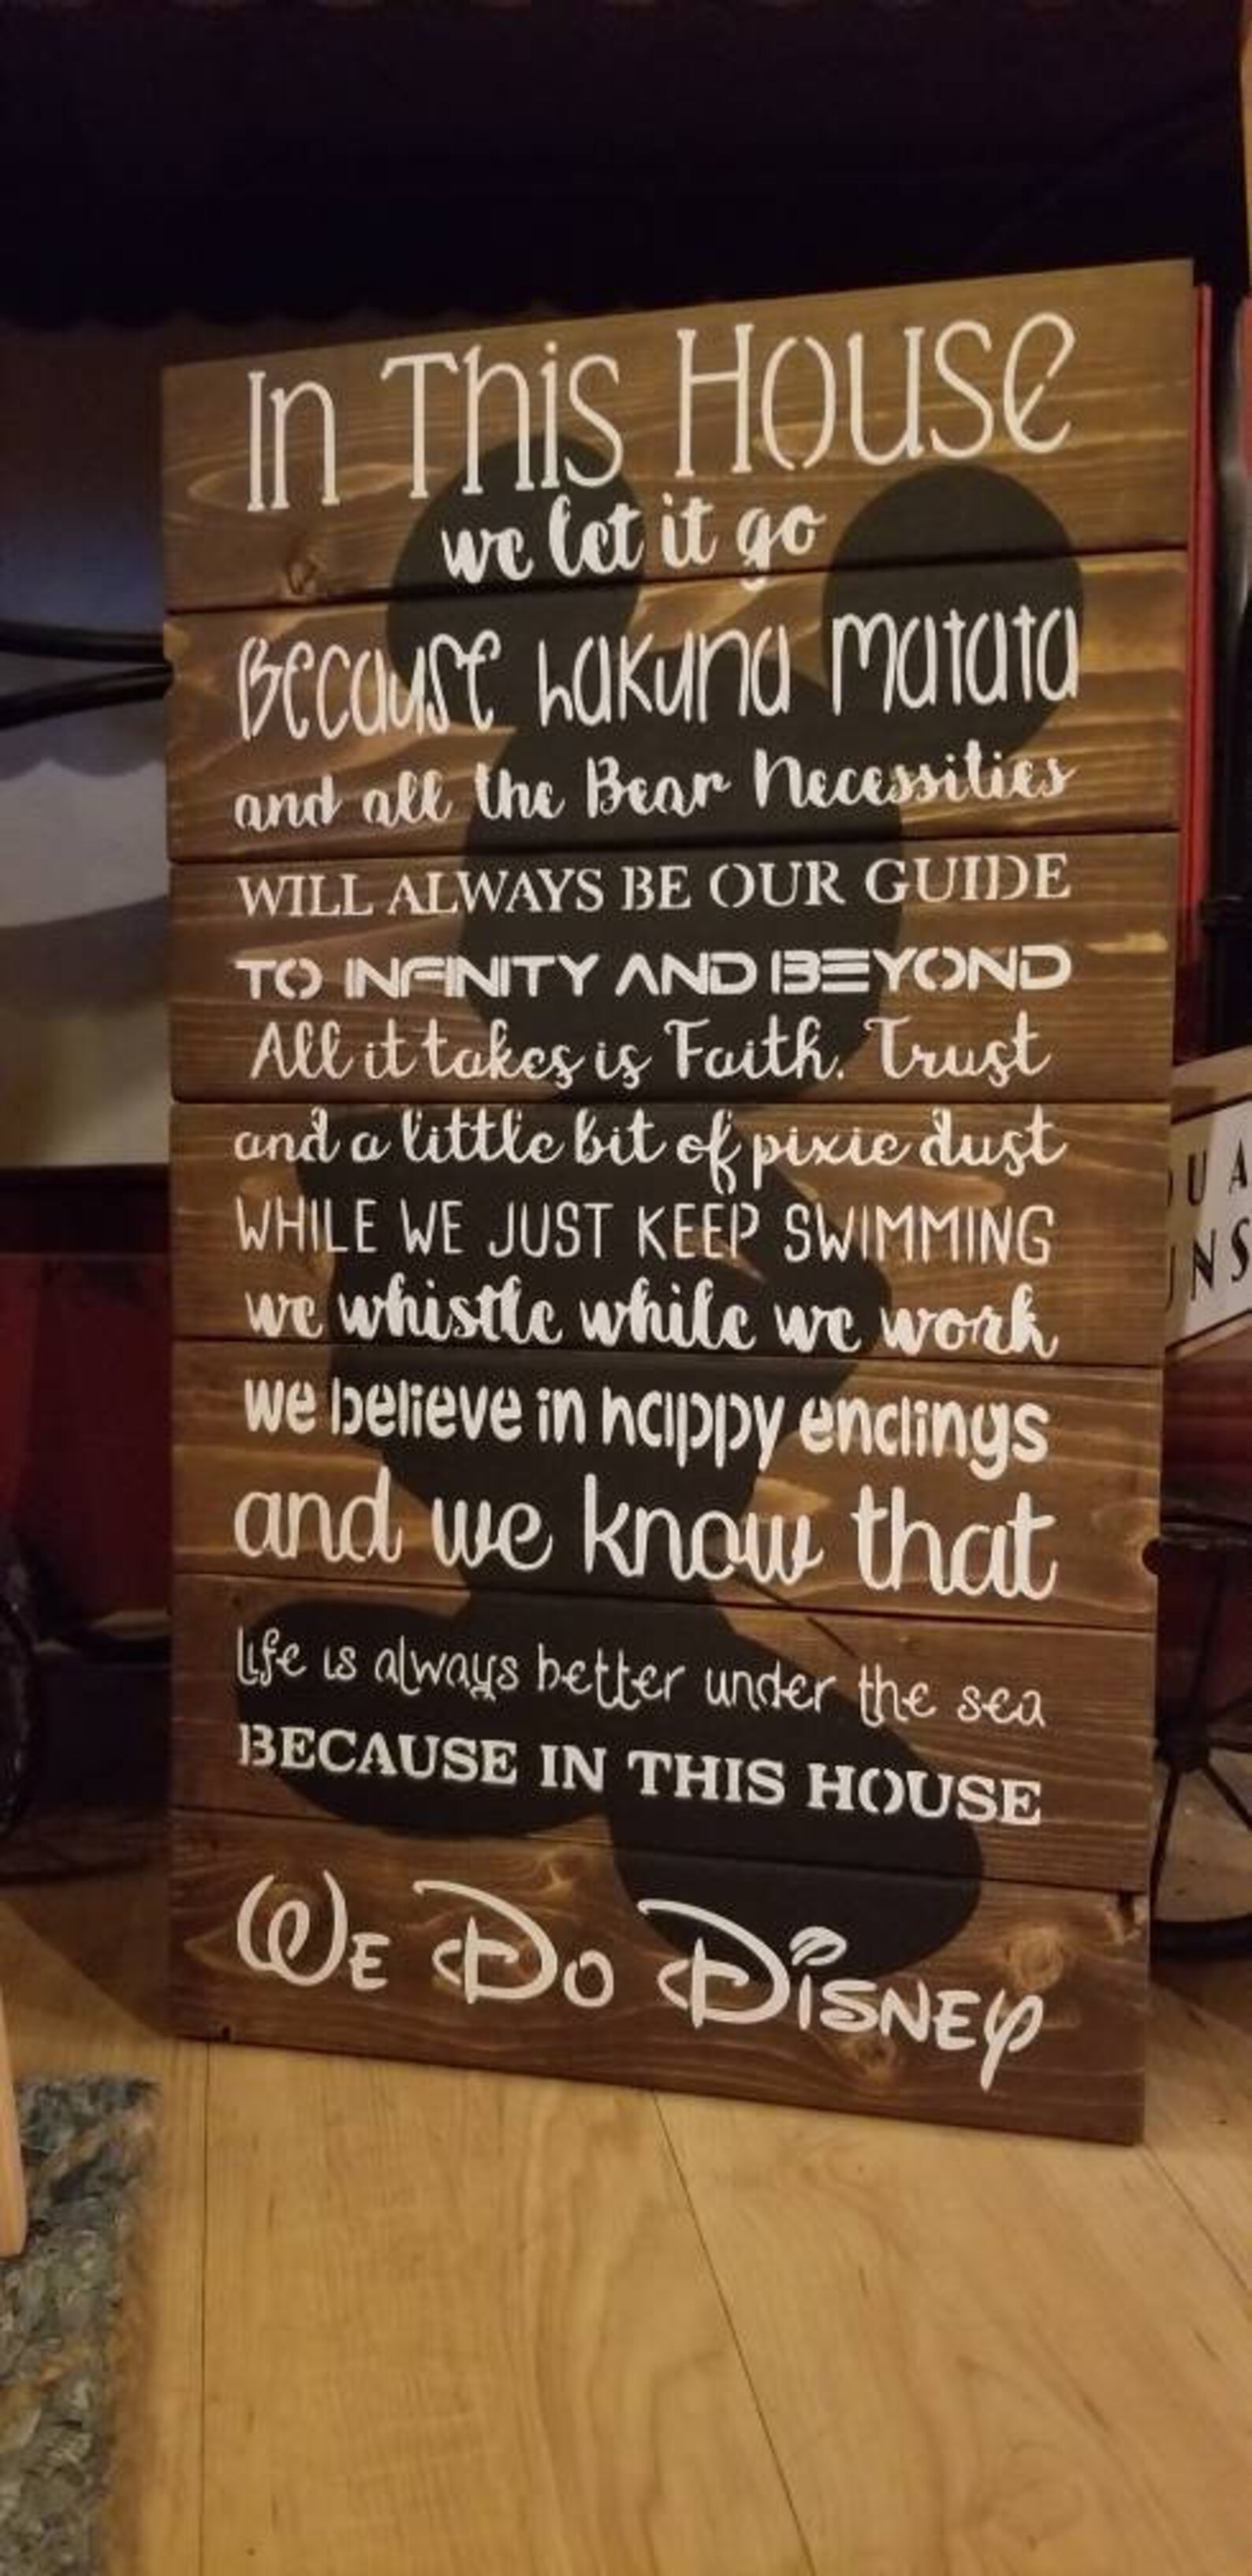 In This House
we let it go
Because hakuna matata
and all the Bear Necessities
WILL ALWAYS BE OUR GUIDE
TO INFINITY AND BEYOND
All it takes is Faith. Trust
and a little bit of pixie dust
WHILE WE JUST KEEP SWIMMING
we whistle while we work
we believe in happy endings
and we know that
Life is always better under the sea
BECAUSE IN THIS HOUSE
We Do Disney